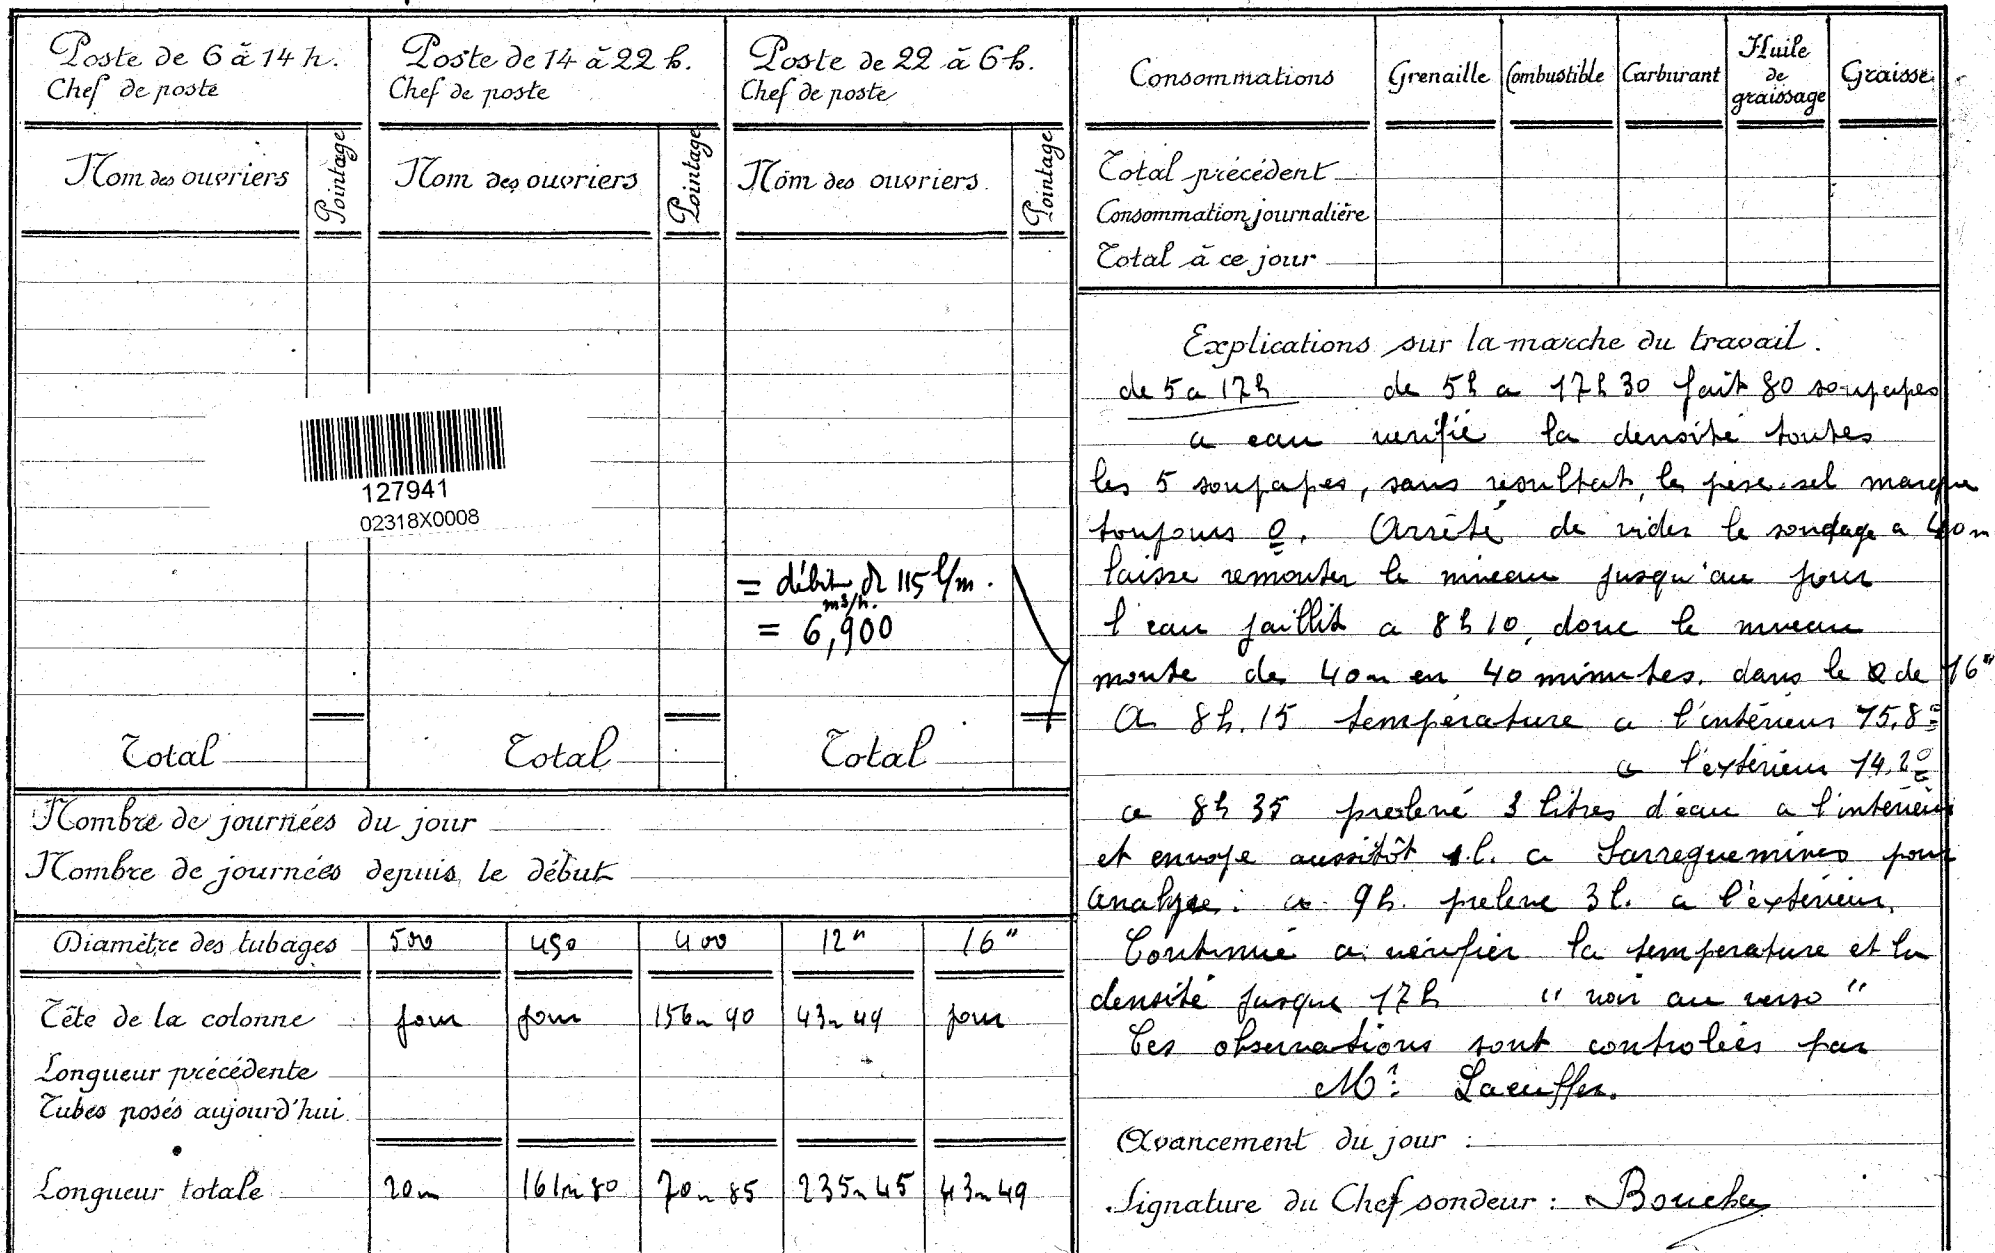 Poste de 6 à 14 h.
Chef de poste
Nom des ouvriers
Pointage
Poste de 14 à 22 h.
Chef de poste
Nom des ouvriers
Pointage
Poste de 22 à 6 h.
Chef de poste
Nom des ouvriers
Pointage
127941
02318X0008
= débit de 115 l/m.
m3/h.
= 6,900
Total
Total
Total
Nombre de journées du jour
Nombre de journées depuis le début
Diamètre des tubages 500 450 400 12" 16"
Tête de la colonne jour jour 156m 90 43m 49 jour
Longueur précédente
Tubes posés aujourd'hui
Longueur totale 20m 161m 80 70m 85 235m 45 43m 49
Consommations Grenaille Combustible Carburant Huile de graissage Graisse
Total précédent
Consommation journalière
Total à ce jour
Explications sur la marche du travail.
de 5 a 17h de 5h a 17h30 fait 80 soupapes
a eau verifié la densité toutes
les 5 soupapes, sans resultat, le pese-sel marque
toujours 0. Arrêté de vider le sondage a 40m
laisse remonter le niveau jusqu'au jour
l'eau jaillit a 8h10, donc le niveau
monte de 40m en 40 minutes. dans le de 16"
A 8h.15 température a l'intérieur 15,8°
a l'extérieur 14,2°
a 8h 35 prelevé 3 litres d'eau a l'intérieur
et envoye aussitôt 1 l. a Sarreguemines pour
analyse. a 9h. preleve 3 l. a l'extérieur.
Continué a vérifier la temperature et la
densité jusque 17h " voir au verso "
Ces observations sont controlées par
Mr. Laeuffer.
Avancement du jour :
Signature du Chef sondeur :